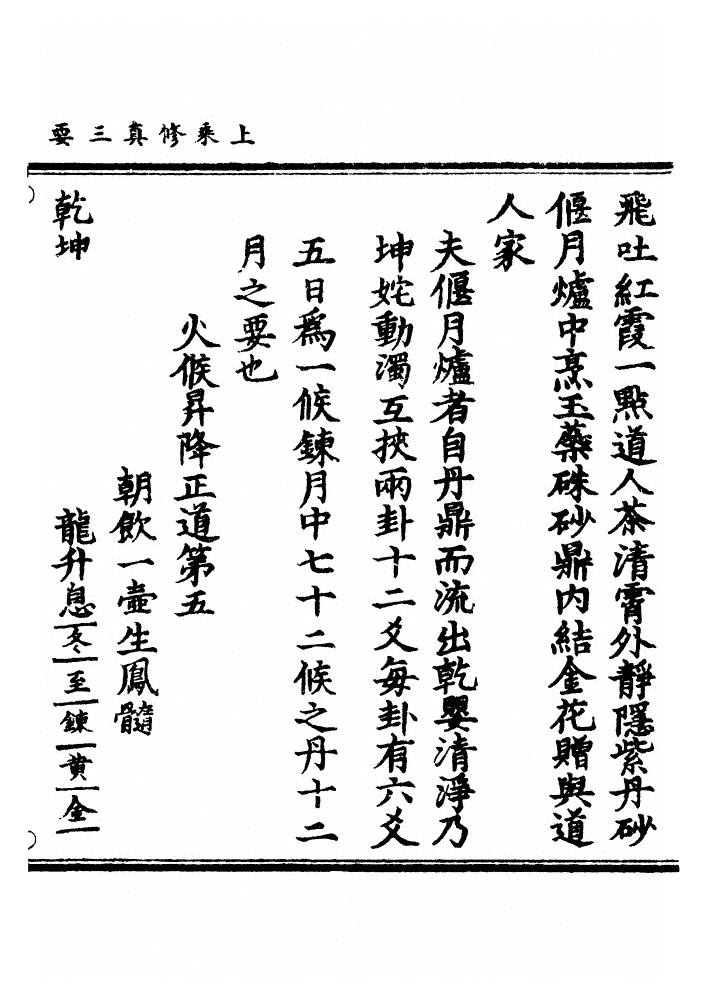 上乘修真三要
飛吐紅霞一點道人茶清霄外靜隱紫丹砂
偃月爐中烹玉藥硃砂鼎內結金花贈與道
人家
夫偃月爐者自丹鼎而流出乾嬰清淨乃
坤姹動濁互挾兩卦十二爻每卦有六爻
五日爲一候鍊月中七十二候之丹十二
月之要也
火候昇降正道第五
朝飲一壺生鳳髓
乾坤
龍升息冬至鍊黃金